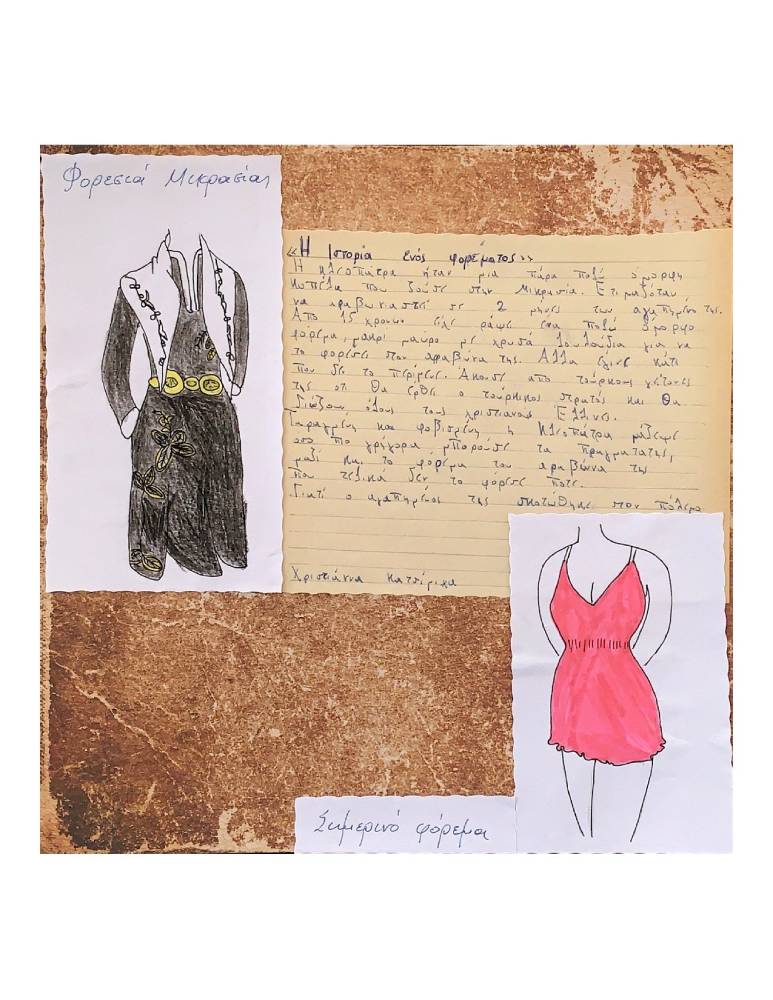 Φορεσιά Μικρασίας
«Η Ιστορία ενός φορέματος»
Η κλεοπάτρα ήταν μια πάρα πολύ όμορφη
κοπέλα που ζούσε στην Μικρασία. Ετιμαζόταν
να αραβωνιαστεί σε 2 μήνες τον αγαπημένο της.
Απο 15 χρονων είχε ράψει ενα πολύ όμορφο
φορεμα, μακρί μαύρο με χρυσά λουλούδια για να
το φορεσει στον αραβώνα της. Αλλα έγινε κάτι
που δε το περίμενε. Ακουσε απο τούρκους γείτονες
της οτι θα ερθει ο τούρκικος στρατός και θα
διώξουν όλους τους χριστιανους Ελλινες.
Ταραγμένη και φοβισμένη η Κλεοπάτρα μάζεψε
οσο πιο γρήγορα μπορούσε τα πραγματατης,
μαζί και το φόρεμα του αραβώνα της
που τελικά δεν το φόρεσε ποτε.
Γιατί ο αγαπημένος της σκοτώθηκε στον πόλεμο
Χριστιάννα Κατσίμιχα
Σημερινό φόρεμα